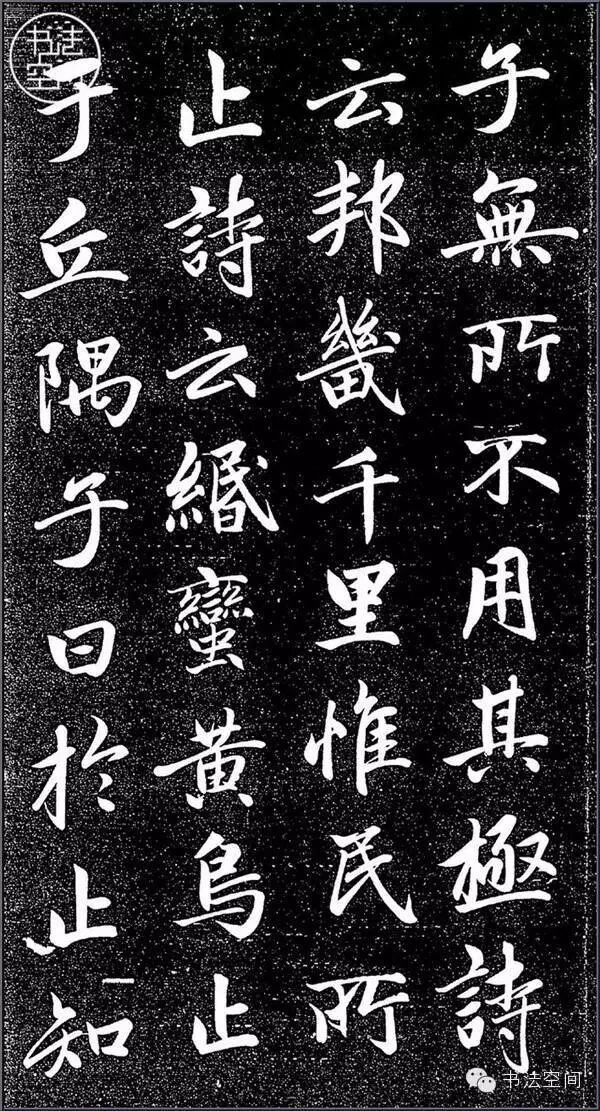 子無所不用其極詩
云邦畿千里惟民所
止詩云緡蠻黃鳥止
于丘隅子曰於止知
书法空间
书法空间